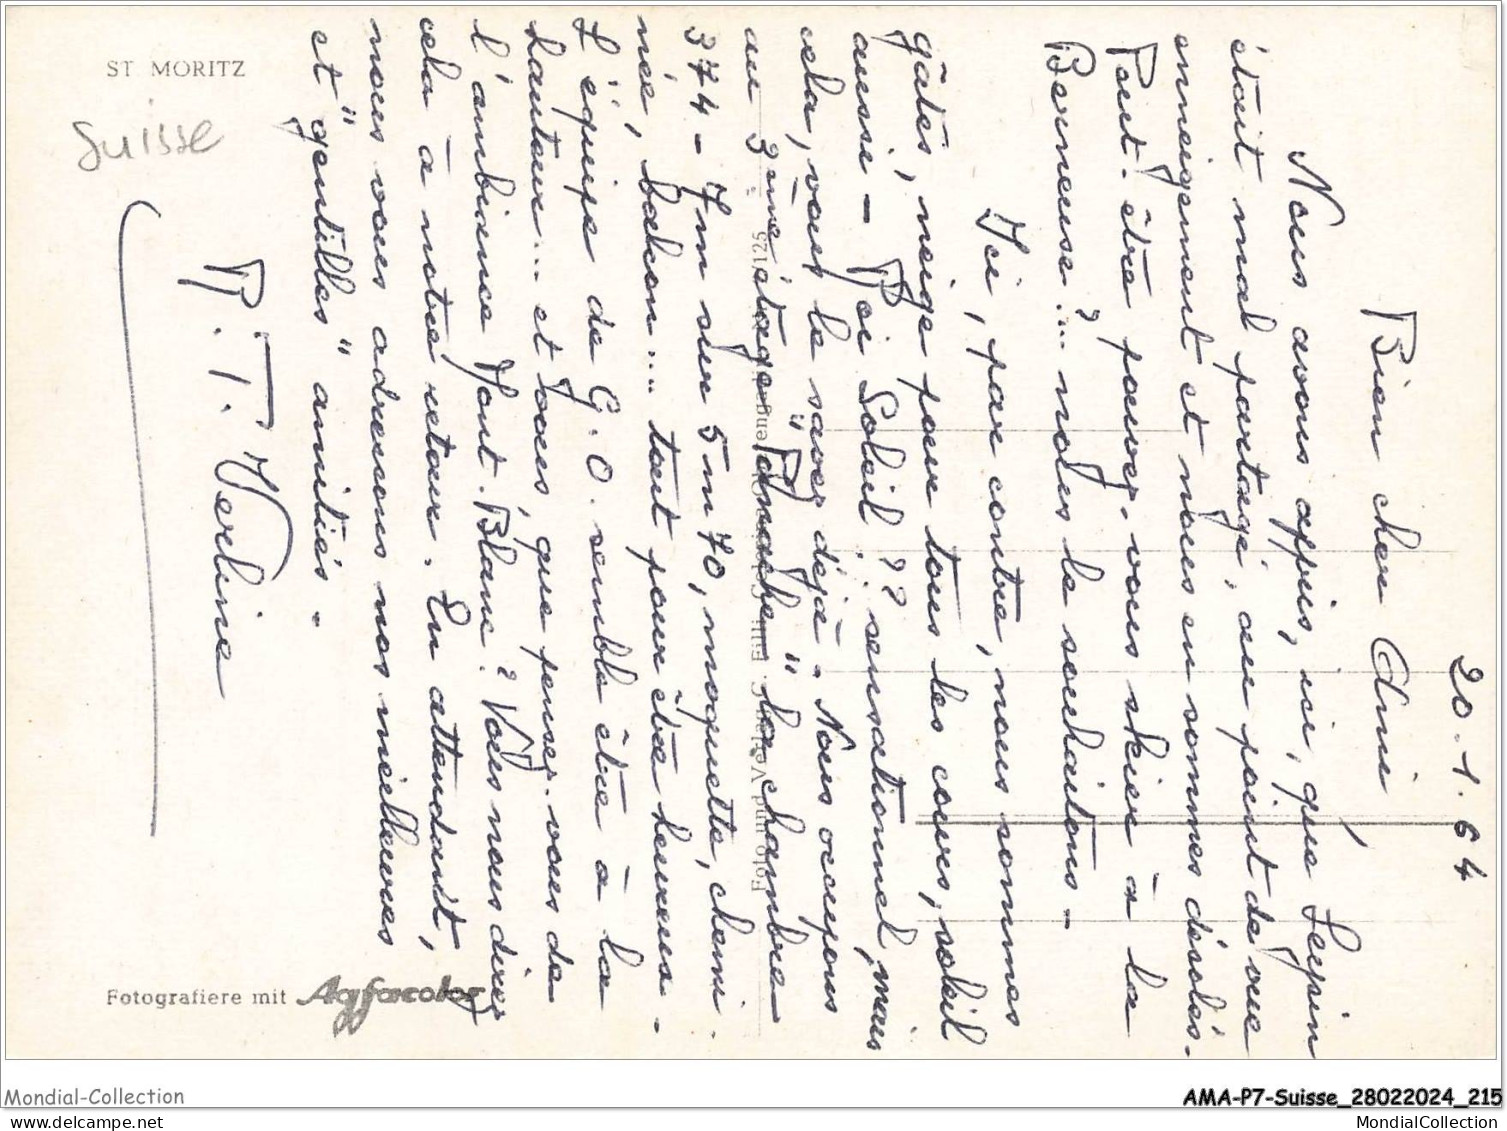 ST. MORITZ
Suisse
20.1.64
Bien cher Ami
Nous avons appris, ici, que Leysin
était mal partagé, au point de vue
enneigement et nous en sommes désolés.
Peut-être pouvez-vous skier à la
Berneuse?... nous le souhaitons -
Ici, par contre, nous sommes
gâtés, neige pour tous les cours, soleil
aussi - Roi Soleil?? sensationnel, mais
cela, vous le savez déjà. Nous occupons
au 3ème étage "Rouche" la chambre
374 - 7m sur 5m70, moquette, chemi-
née, balcon... tout pour être heureux.
L'équipe de G.O. semble être à la
hauteur... et vous, que pensez-vous de
l'ambiance Mont-Blanc? Vous nous direz
cela à notre retour. En attendant,
nous vous adressons nos meilleures
et "gentilles" amitiés.
P.T. Verline
Foto und Verlag
Fotografiere mit Agfacolor
Mondial-Collection
AMA-P7-Suisse_28022024_215
MondialCollection